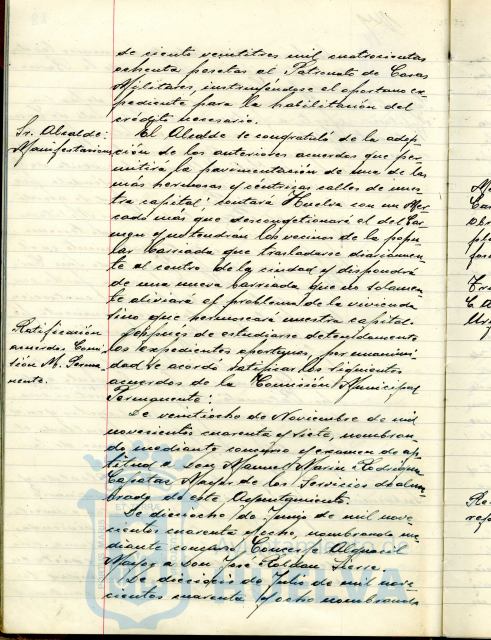 de ciento veintitres mil cuatrocientas
ochenta pesetas al Patronato de Casas
Militares, instruyéndose el oportuno ex-
pediente para la habilitación del
crédito necesario.
Sr. Alcalde:
Manifestaciones
El Alcalde se congratuló de la adop-
ción de los anteriores acuerdos que per-
mitirá la pavimentación de una de las
más hermosas y céntricas calles de nues-
tra capital: contará Huelva con un Mer-
cado más que descongestionará el del Car-
men y no tendrán los vecinos de la popu-
lar barriada que trasladarse diariamen-
te al centro de la ciudad y dispondrá
de una nueva barriada que no solamen-
te aliviará el problema de la vivienda
sino que hermoseará nuestra capital.
Ratificación
acuerdos Comi-
sión M. Perma-
nente.
Después de estudiarse detenidamente
los expedientes oportunos, por unanimi-
dad se acordó ratificar los siguientes
acuerdos de la Comisión Municipal
Permanente:
De veintiocho de Noviembre de mil
novecientos cuarenta y siete, nombran-
do mediante concurso y examen de ap-
titud a don Manuel Marín Rodríguez
Capataz Mayor de los Servicios de alum-
brado de este Ayuntamiento.
De dieciocho de Junio de mil nove-
cientos cuarenta y ocho, nombrando me-
diante concurso Conserje Alguacil
Mayor a don José Roldán Sierra.
De dieciocho de Julio de mil nove-
cientos cuarenta y ocho nombrando
HUELVA